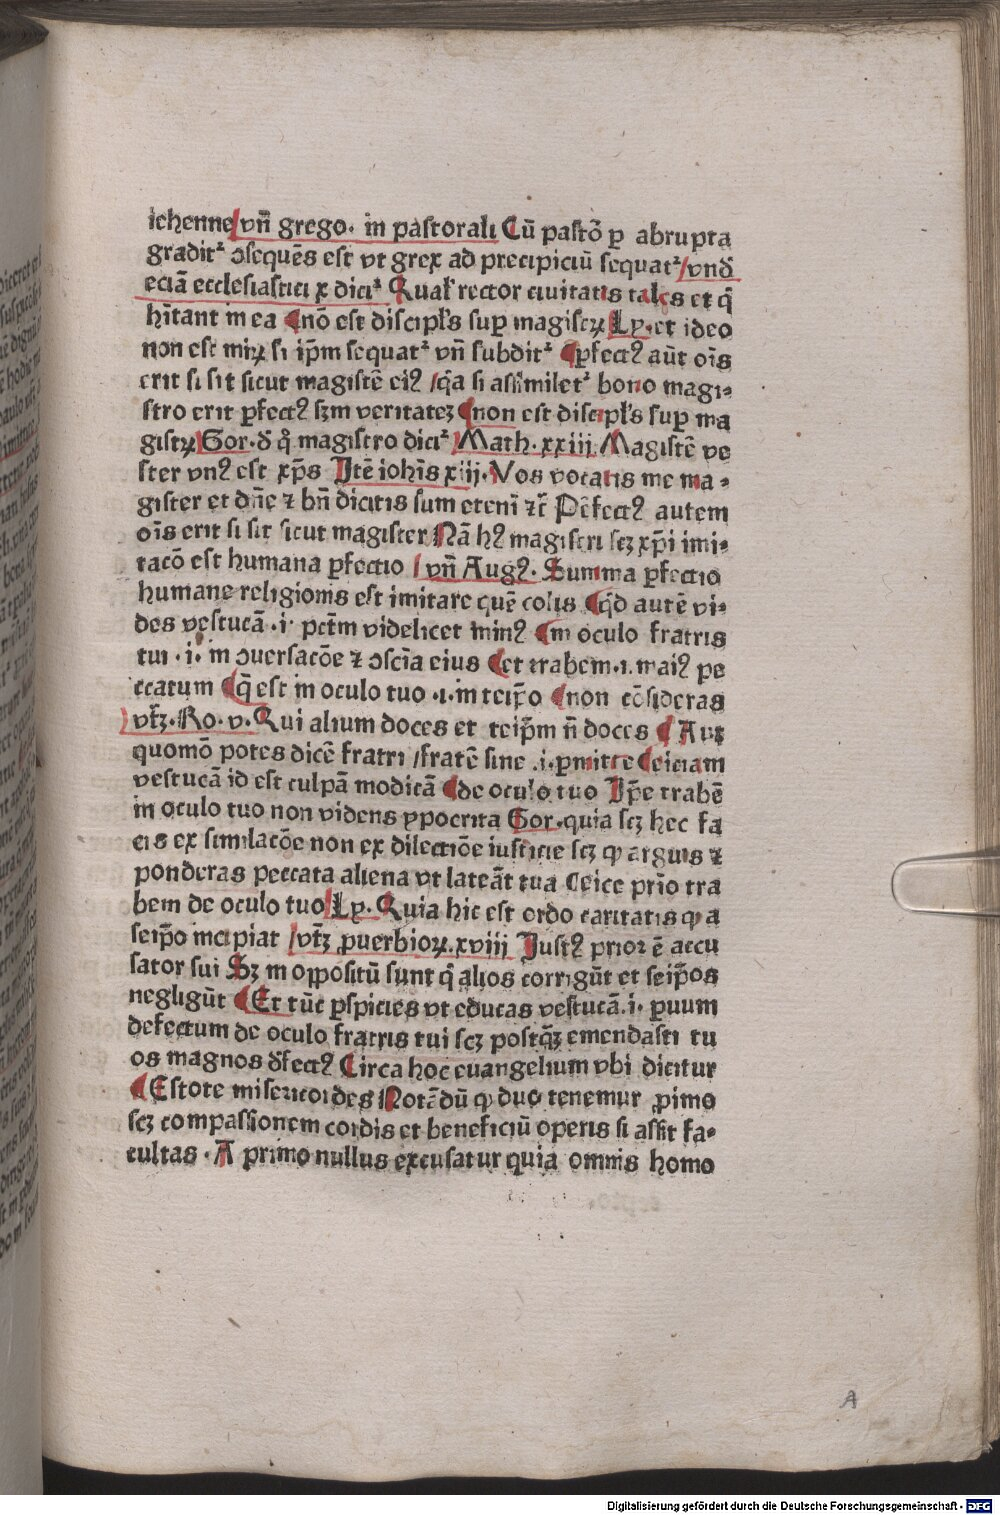 iehenne/ vñ grego. in pastorali Cū pastõ ꝑ abrupta
gradit᷑ ɔsequēs est vt grex ad precipiciū sequat᷑ / vnđ
eciā ecclesiastici x dici᷑ Qualʼ rector ciuitatis tales et q̄
hītant in ea ¶ nō est discipl̄s suꝑ magistꝝ Ly. et ideo
non est mirꝝ si ip̄m sequat᷑ vñ subdit᷑ ¶ ꝑfectꝰ aūt oīs
erit si sit sicut magistē eiꝰ / q̄a si assimilet᷑ bono magi-
stro erit ꝑfectꝰ sꝫm veritateꝫ ¶ non est discipl̄s suꝑ ma
gistꝝ Gor. đ q̊ magistro dici᷑ / Math. xxiij / Magistē ve
ster vnꝰ est xp̄s Itē iohīs xiij. Vos vocatis me ma-
gister et dn̄e ⁊ bn̄ dicitis sum etenī ⁊c̄ Pēfectꝰ autem
oīs erit si sit sicut magister Nā hꝰ magistri scꝫ xp̄i imi-
tacō est humana ꝑfectio / vñ Augꝰ. Summa ꝑfectio
humane religionis est imitare quē colis ¶ q̄d autē vi-
des vestucā .i. pctm̄ videlicet minꝰ ¶ in oculo fratris
tui .i. in ɔuersacōe ⁊ ɔscīa eius ¶ et trabem .i. maiꝰ pe
ccatum ¶ q̄ est in oculo tuo .i. in teip̄o ¶ non cōsideras
/ vt̄ꝫ. Ro. v. Qui alium doces et teip̄m n̄ doces ¶ Aut
quomō potes dicē fratri / fratē sine .i. ꝑmitte ¶ eiciam
vestucā id est culpā modicā ¶ de oculo tuo Ip̄e trabē
in oculo tuo non videns ypocrita Gor. quia scꝫ hec fa
cis ex similacōe non ex dilectiōe iusticie scꝫ ꝙ arguis ⁊
ponderas peccata aliena vt lateāt tua Ceice prīo tra
bem de oculo tuo / Ly. Quia hic est ordo caritatis ꝙ a
seip̄o incipiat / vt̄ꝫ ꝓuerbioꝝ. xviij Iustꝰ prior ē accu
sator sui Sꝫ in oppositū sunt q̄ alios corrigūt et seip̄os
negligūt ¶ Et tūc ꝑspicies vt educas vestucā .i. ꝑuum
defectum de oculo fratris tui scꝫ postq̄ꝫ emendasti tu
os magnos đfectꝰ Circa hoc euangelium vbi dicitur
¶ Estote misericordes Notādū ꝙ duo tenemur ꝓimo
scꝫ compassionem cordis et beneficiū operis si assit fa-
cultas. A primo nullus excusatur quia omnis homo
A
Digitalisierung gefördert durch die Deutsche Forschungsgemeinschaft - DFG